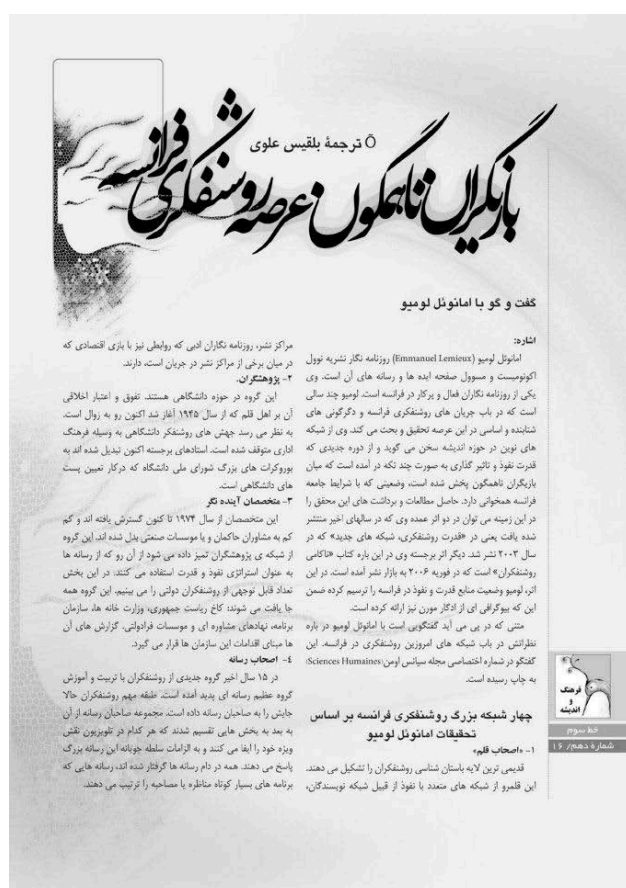 بازیگران ناهمگون عرصه روشنفکری فرانسه
ترجمهٔ بلقیس علوی
گفت و گو با امانوئل لومیو
اشاره:
امانوئل لومیو (Emmanuel Lemieux) روزنامه نگار نشریه نوول
اکونومیست و مسوول صفحه ایده ها و رسانه های آن است. وی
یکی از روزنامه نگاران فعال و پرکار در فرانسه است. لومیو چند سالی
است که در باب جریان های روشنفکری فرانسه و دگرگونی های
شتابنده و اساسی در این عرصه تحقیق و بحث می کند. وی از شبکه
های نوین در حوزه اندیشه سخن می گوید و از دوره جدیدی که
قدرت نفوذ و تاثیر گذاری به صورت چند تکه در آمده است که میان
بازیگران ناهمگون پخش شده است، وضعیتی که با شرایط جامعه
فرانسه همخوانی دارد. حاصل مطالعات و برداشت های این محقق را
در این زمینه می توان در دو اثر عمده وی که در سالهای اخیر منتشر
شده یافت یعنی در «قدرت روشنفکری، شبکه های جدید» که در
سال ۲۰۰۳ نشر شد. دیگر اثر برجسته وی در این باره کتاب «ناکامی
روشنفکران» است که در فوریه ۲۰۰۶ به بازار نشر آمده است. در این
اثر، لومیو وضعیت منابع قدرت و نفوذ در فرانسه را ترسیم کرده ضمن
این که بیوگرافی ای از ادگار مورن نیز ارائه کرده است.
متنی که در پی می آید گفتگویی است با امانوئل لومیو در باره
نظراتش در باب شبکه های امروزین روشنفکری در فرانسه. این
گفتگو در شماره اختصاصی مجله سیانس اومن (Sciences Humaines)
به چاپ رسیده است.
چهار شبکه بزرگ روشنفکری فرانسه بر اساس
تحقیقات امانوئل لومیو
۱- «اصحاب قلم»
قدیمی ترین لایه باستان شناسی روشنفکران را تشکیل می دهند.
این قلمرو از شبکه های متعدد با نفوذ از قبیل شبکه نویسندگان،
مراکز نشر، روزنامه نگاران ادبی که روابطی نیز با بازی اقتصادی که
در میان برخی از مراکز نشر در جریان است، دارند.
۲- پژوهشگران.
این گروه در حوزه دانشگاهی هستند. تفوق و اعتبار اخلاقی
آن بر اهل قلم که از سال ۱۹۴۵ آغاز شد اکنون رو به زوال است.
به نظر می رسد جهش های روشنفکر دانشگاهی به وسیله فرهنگ
اداری متوقف شده است. استادهای برجسته اکنون تبدیل شده اند به
بوروکرات های بزرگ شورای ملی دانشگاه که درکار تعیین پست
های دانشگاهی است.
۳- متخصصان آینده نگر
این متخصصان از سال ۱۹۷۴ تا کنون گسترش یافته اند و کم
کم به مشاوران حاکمان و یا موسسات صنعتی بدل شده اند. این گروه
از شبکه ی پژوهشگران تمیز داده می شود از آن رو که از رسانه ها
به عنوان استراتژی نفوذ و قدرت استفاده می کنند. در این بخش
تعداد قابل توجهی از روشنفکران دولتی را می بینیم. این گروه همه
جا یافت می شوند؛ کاخ ریاست جمهوری، وزارت خانه ها، سازمان
برنامه، نهادهای مشاوره ای و موسسات فرادولتی. گزارش های آن
ها مبنای اقدامات این سازمان ها قرار می گیرد.
٤- اصحاب رسانه
در ۱۵ سال اخیر گروه جدیدی از روشنفکران با تربیت و آموزش
گروه عظیم رسانه ای پدید آمده است. طبقه مهم روشنفکران حالا
جایش را به صاحبان رسانه داده است. مجموعه صاحبان رسانه از آن
به بعد به بخش هایی تقسیم شدند که هر کدام در تلویزیون نقش
ویژه خود را ایفا می کنند و به الزامات سلطه جویانه این رسانه بزرگ
پاسخ می دهند. همه در دام رسانه ها گرفتار شده اند، رسانه هایی که
برنامه های بسیار کوتاه مناظره یا مصاحبه را ترتیب می دهند.
فرهنگ
و
اندیشه
خط سوم
شمارهٔ دهم/ ۱۶